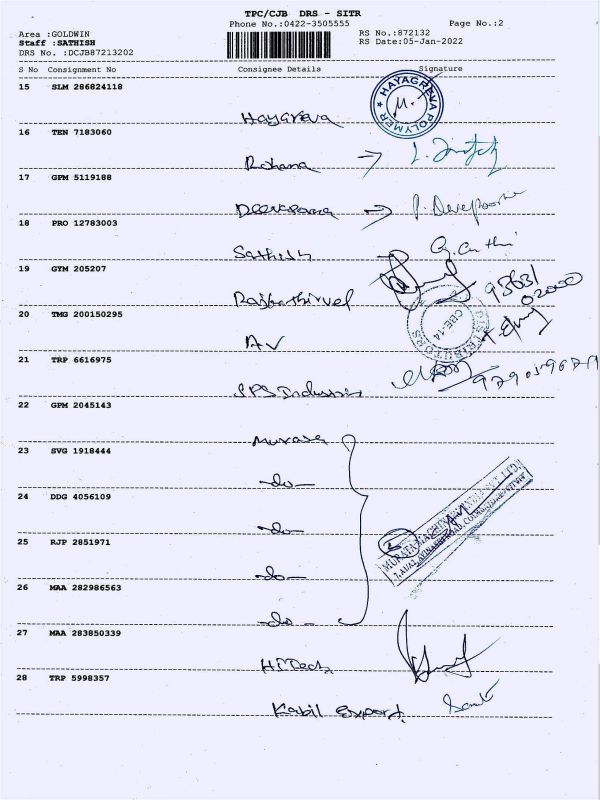 TPC/CJB DRS - SITR
Phone No.:0422-3505555 Page No.:2
Area :GOLDWIN RS No.:872132
Staff :SATHISH RS Date:05-Jan-2022
DRS No. :DCJB87213202
S No Consignment No Consignee Details Signature
15 SLM 286824118
Hayagreva HAYAGREVA POLYMER
16 TEN 7183060
Rohana
17 GPM 5119188
18 PRO 12783003
Sathish
19 GYM 205207
93631
02000
20 TMG 200150295
AV DISTRIBUTORS CBE-14
21 TRP 6616975
SPS Industries
22 GPM 2045143
23 SVG 1918444
-do-
24 DDG 4056109
-do-
25 RJP 2851971
-do-
26 MAA 282986563
-do-
27 MAA 283850339
HiTech
28 TRP 5998357
Kabil Export